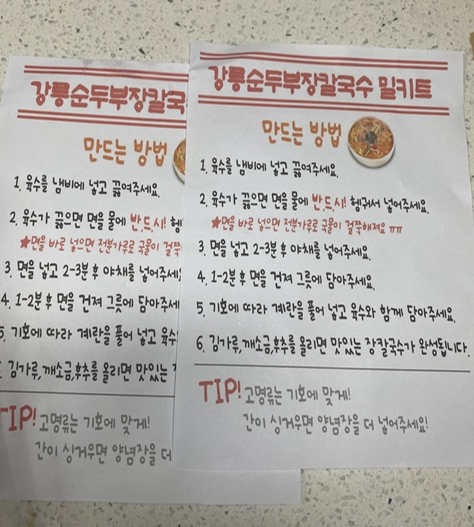 강릉순두부장칼국수 밀키트
만드는 방법
1. 육수를 냄비에 넣고 끓여주세요.
2. 육수가 끓으면 면을 물에 반드시! 헹궈서 넣어주세요.
★면을 바로 넣으면 전분가루로 국물이 걸쭉해져요 ㅠㅠ
3. 면을 넣고 2-3분 후 야채를 넣어주세요.
4. 1-2분 후 면을 건져 그릇에 담아주세요.
5. 기호에 따라 계란을 풀어 넣고 육수와 함께 담아주세요.
6. 김가루,깨소금,후추를 올리면 맛있는 장칼국수가 완성됩니다
TIP! 고명류는 기호에 맞게!
간이 싱거우면 양념장을 더 넣어주세요!
강릉순두부장칼국
만드는 방법
1. 육수를 냄비에 넣고 끓여주세요.
2. 육수가 끓으면 면을 물에 반드시!
★면을 바로 넣으면 전분가루로 국물이 걸쭉
3. 면을 넣고 2-3분 후 야채를 넣어주세
4. 1-2분 후 면을 건져 그릇에 담아주세
5. 기호에 따라 계란을 풀어 넣고 육수
김가루,깨소금,후추를 올리면 맛있는
TIP! 고명류는 기호에 맞게!
간이 싱거우면 양념장을 더